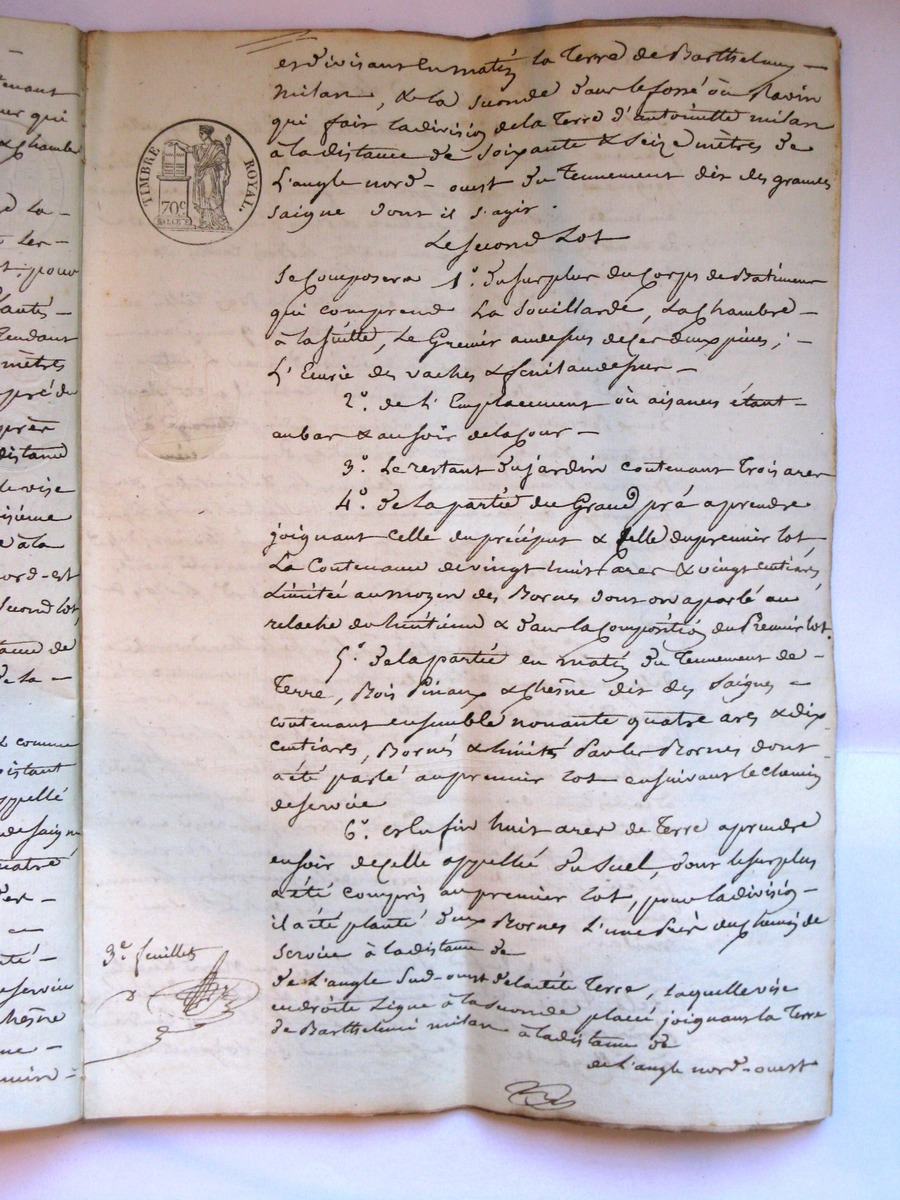 TIMBRE ROYAL.
70c
et divisant en matin la Terre de Barthelemy
milan, & la seconde dans le fossé ou Ravin
qui fait la division de la Terre d'antoinette milan
à la distance de soixante & seize mètres de
L'angle nord-ouest du Tennement dit des grandes
saigne dont il s'agit.
Le second Lot
Se Composera 1º. du surplus du Corps de Batiment
qui comprend La souillarde, La Chambre
à la suitte, Le Grenier au dessus de ces deux pièces;
L'Ecurie des vaches & fenil au dessus
2º. de l'Emplacement ou aisances étant
au bas & au soir de la Cour
3º. Le restant du jardin contenant Trois ares
4º. de la partie du Grand pré aprendre
joignant celle du préciput & celle du premier lot
La Contenance de vingt huit ares & vingt centiares
Limité au moyen des Bornes dont on a parlé au
relache du huitième & dans la Composition du Premier lot.
5º. de la partie en matin du Tennement de
Terre, Bois Pinaux & Chesne dit des Saignes
contenant ensemble nonante quatre ares & dix
centiares, Bornés & limités Par les Bornes dont
a été parlé au premier lot en suivant le chemin
de service
6º. et Enfin huit ares de Terre aprendre
en soir de celle appellée du Suel, dont le surplus
a été compris au premier lot, pour la division
il a été planté deux Bornes L'une Près du chemin de
service à la distance de
de L'angle Sud-ouest de la dite Terre, laquelle vise
en droite Ligne à la seconde placée joignant la Terre
de Barthelemi milan à la distance de
de l'angle nord-ouest
3e. feuillet
tenant
ur qui
& Chambre
pour
Tendant
mètres
pré du
près
distance
vise
e à la
nord-est
Second lot,
de
de la
& comme
appellé
de saigne
service
hesne